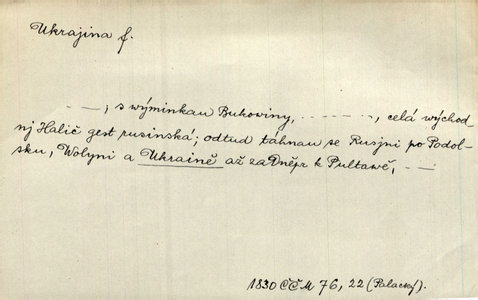 Ukrajina f.
— ; s wýminkau Bukowiny, - - - - - -, celá wýchod
nj Halič gest rusinská; odtud táhnau se Rusjni po Podol-
sku, Wolyni a Ukraině až za Dněpr k Pultawě, - —
1830 ČČM 76, 22 (Palacký).